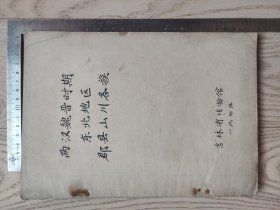 两汉魏晋时期
东北地区
郡县山川各族
吉林省博物馆
一九七五